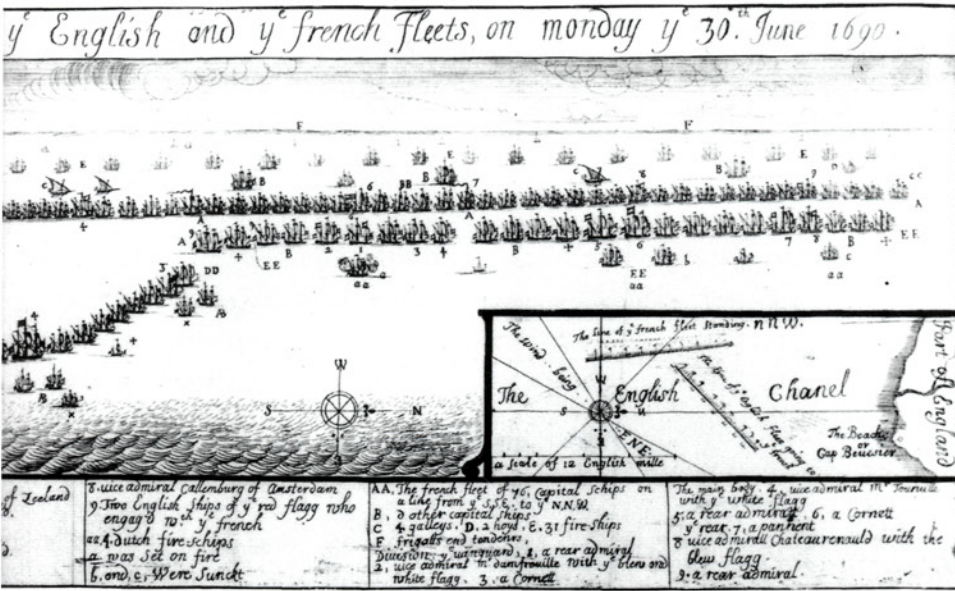 yᵉ English and yᵉ french Fleets, on monday yᵉ 30.th June 1690.
F F
E E E
c B B c B
6 BB 7 8 9 c c
4 A A A
A B 2 1 3 4 B 5 6 7 8 B E E
E E a E E b c
a a a a a a
3 D D
B
4
B
x
W
S N
The wind being
The Line of yᵉ french fleet standing. N N W.
W
The English Chanel
S N
E N E
The Beachy
or
Cap Beuesier
Part of England
a Scale of 12 English mille
of Zeeland
8. uice admiral Callemburg of Amsterdam
9. Two English ships of yᵉ red flagg who
engag'd wᵗʰ yᵉ french
aa. 4. dutch fire schips
a was Set on fire
b. and, c, Were Sunckt
AA, The french fleet of 76, Capital schips on
a line from yᵉ S.S.E. to yᵉ N.N.W.
B, d other capital ships.
C 4, galleys. D. 2 hoys. E. 31 fire-ships
F frigats end tenders,
Diuision, yᵉ vanguard, 1, a rear admiral
2, uice admiral mʳ damfrouille with yᵉ blew and
white flagg. 3, a Cornett
The main body. 4, uice admiral mʳ Tourville
with yᵉ white flagg
5, a rear admirall, 6, a Cornett
yᵉ rear. 7, a pannent
8 uice admirall Chateaurenauld with the
blew flagg.
9. a rear admiral.